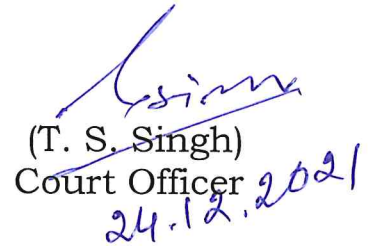 (T. S. Singh)
Court Officer
24.12.2021